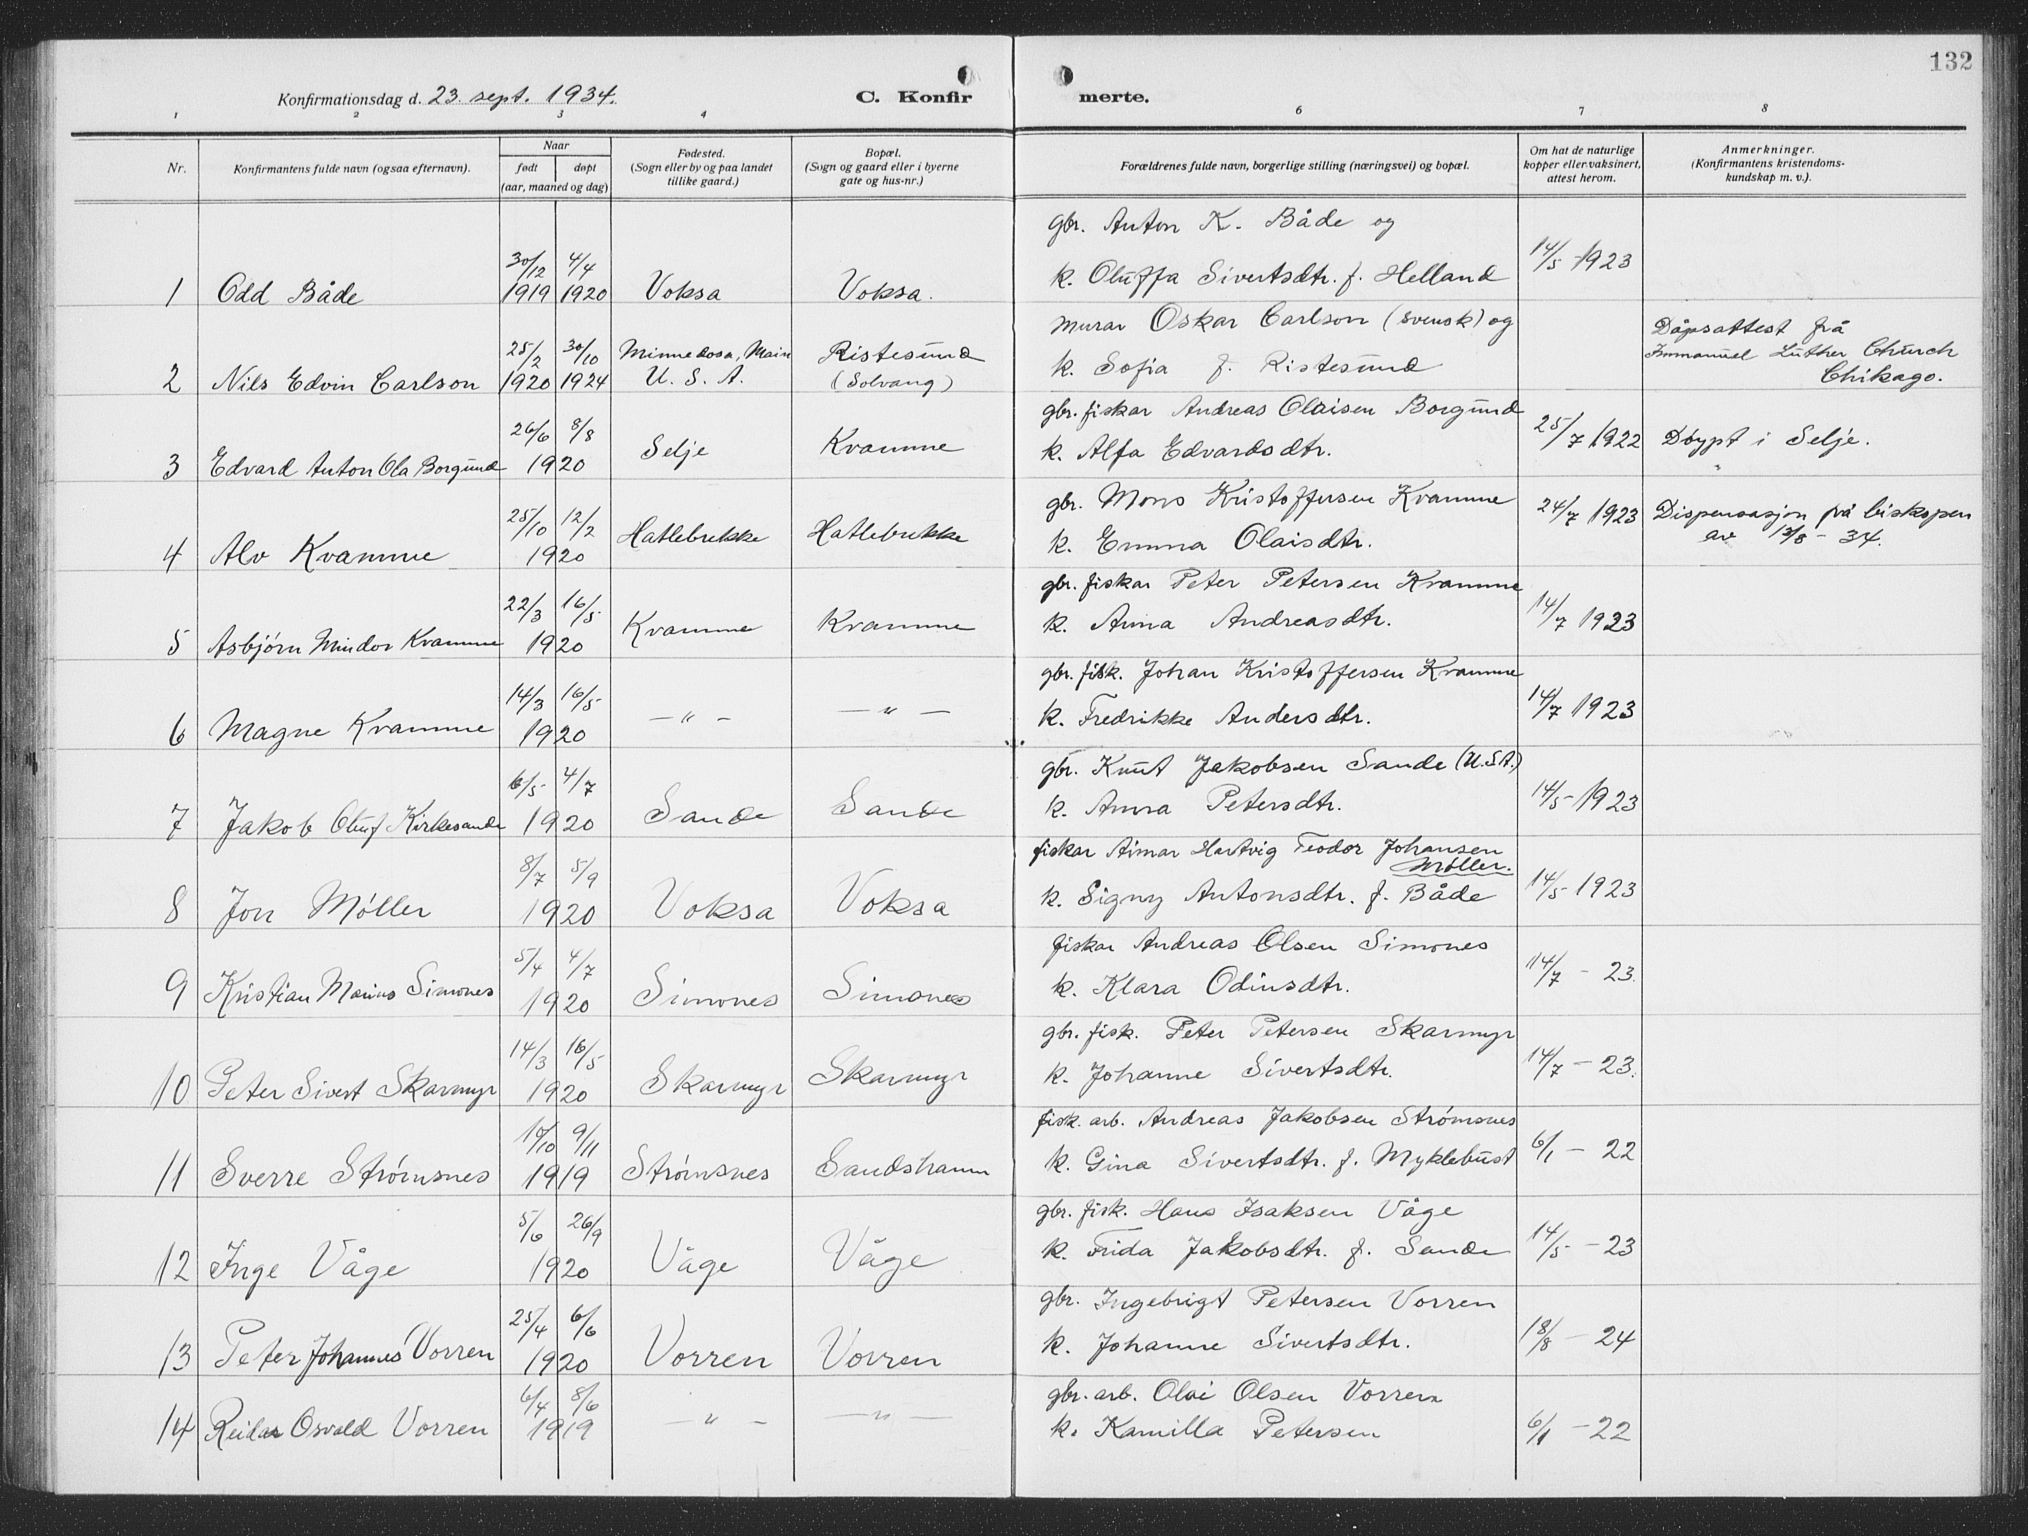 132
Konfirmationsdag d. 23. sept. 1934.
C. Konfirmerte.
1 2 3 4 6 7 8
Nr.
Konfirmantens fulde navn (ogsaa efternavn).
Naar
født døpt
(aar, maaned og dag)
Fødested.
(Sogn eller by og paa landet
tillike gaard.)
Bopæl.
(Sogn og gaard eller i byerne
gate og hus-nr.)
Forældrenes fulde navn, borgerlige stilling (næringsvei) og bopæl.
Om hat de naturlige
kopper eller vaksinert,
attest herom.
Anmerkninger.
(Konfirmantens kristendoms-
kundskap m. v.).
gbr. Anton K. Både og
30/12 4/4 14/5 - 1923
1 Odd Både 1919 1920 Voksa Voksa. k. Oluffa Sivertsdtr. f. Helland
murar Oskar Carlson (svensk) og
Dåpsattest frå
25/2 30/10 Minnedosa, Main Ristesund Immanuel Luther Church
2 Nils Edvin Carlson 1920 1924 U. S. A. (Solvang) k. Sofia f. Ristesund Chikago.
gbr. fiskar Andreas Olaisen Borgund
26/6 8/8 Selje Kvamme 25/7 1922 Døypt i Selje.
3 Edvard Anton Ola Borgund 1920 k. Alfa Edvardsdtr.
gbr. Mons Kristoffersen Kvamme
25/10 12/2 Hatlebrekke Hatlebrekke 24/7 1923 Dispensasjon frå biskopen
av 13/8 - 34.
4 Alv Kvamme 1920 k. Emma Olaisdtr.
gbr. fiskar Peter Petersen Kvamme
22/3 16/5 Kvamme Kvamme 14/7 1923
5 Asbjørn Mindor Kvamme 1920 k. Anna Andreasdtr.
gbr. fisk. Johan Kristoffersen Kvamme
14/3 16/5 — " — — " — 14/7 1923
6 Magne Kvamme 1920 k. Fredrikke Andersdtr.
gbr. Knut Jakobsen Sande (U.S.A.)
6/5 4/7 Sande Sande 14/5 - 1923
7 Jakob Oluf Kirkesande 1920 k. Anna Petersdtr.
fiskar Aimar Hartvig Teodor Johansen
Møller.
8/7 5/9 14/5 - 1923
8 Jon Møller 1920 Voksa Voksa k. Signy Antonsdtr. f. Både
fiskar Andreas Olsen Simones
5/4 4/7 14/7 - 23.
9 Kristian Marius Simones 1920 Simones Simones k. Klara Odinsdtr.
gbr. fisk. Peter Petersen Skarmyr
14/3 16/5 14/7 - 23.
10 Peter Sivert Skarmyr 1920 Skarmyr Skarmyr k. Johanne Sivertsdtr.
fisk. arb. Andreas Jakobsen Strømsnes
10/10 9/11 6/1 - 22
11 Sverre Strømsnes 1919 Strømsnes Sandshamn k. Gina Sivertsdtr. f. Myklebust
gbr. fisk. Hans Isaksen Våge
5/6 26/9 14/5 - 23
12 Inge Våge 1920 Våge Våge k. Frida Jakobsdtr. f. Sande
gbr. Ingebrigt Petersen Vorren
25/4 6/6 18/8 - 24
13 Peter Johannes Vorren 1920 Vorren Vorren k. Johanne Sivertsdtr.
gbr. arb. Olai Olsen Vorren
6/4 8/6 — " — — " — 6/1 - 22
14 Reidar Osvald Vorren 1919 k. Kamilla Petersen